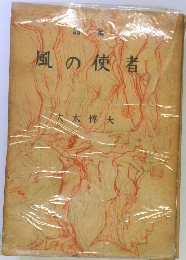 詩集
風の使者
大木惇夫